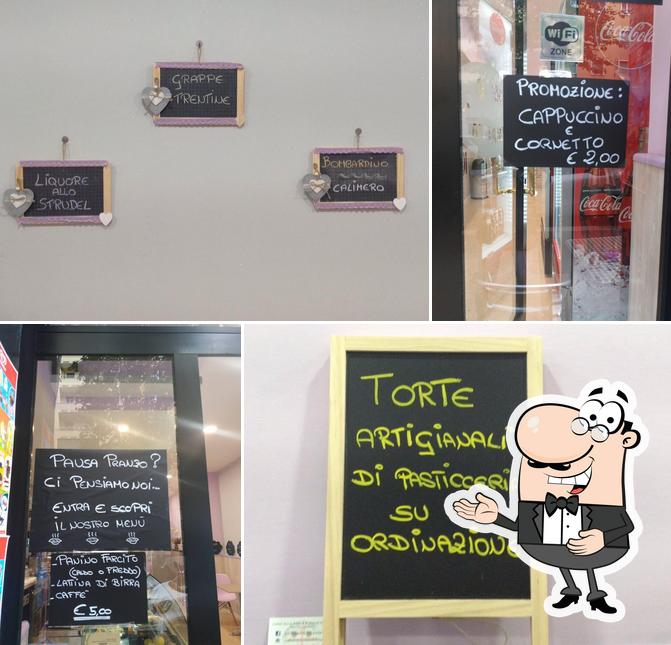 GRAPPE
TRENTINE
LIQUORE
ALLO
STRUDEL
BOMBARDINO
CALIMERO
Wi Fi
ZONE
Coca-Cola
PROMOZIONE:
CAPPUCCINO
E
CORNETTO
€ 2,00
Coca-Cola
PAUSA PRANZO?
CI PENSIAMO NOI...
ENTRA E SCOPRI
IL NOSTRO MENÙ
-PANINO FARCITO
(CALDO O FREDDO)
-LATTINA DI BIRRA
-CAFFE'
€ 5,00
TORTE
ARTIGIANALI
DI PASTICCERI
SU
ORDINAZIONE